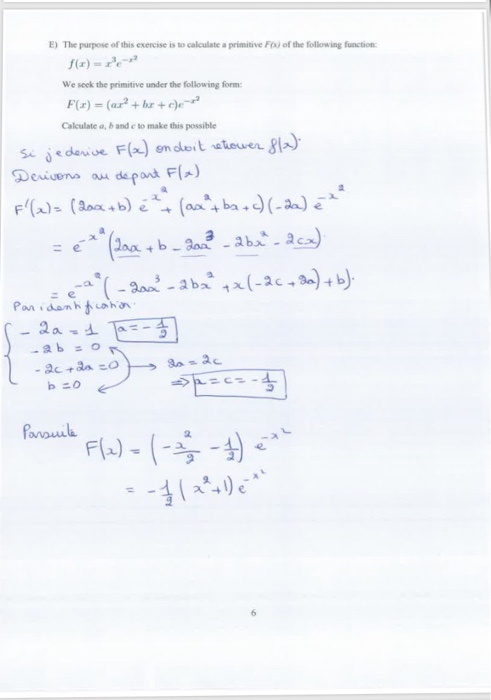 E) The purpose of this exercise is to calculate a primitive F(x) of the following function:
f(x) = x³e^{-x²}
We seek the primitive under the following form:
F(x) = (ax² + bx + c)e^{-x²}
Calculate a, b and c to make this possible
Si je derive F(x) on doit retrouver f(x).
Derivons au depart F(x)
F'(x) = (2ax + b) e^{-x²} + (ax² + bx + c)(-2x) e^{-x²}
= e^{-x²} (2ax + b - 2ax³ - 2bx² - 2cx)
= e^{-x²} (-2ax³ - 2bx² + x(-2c + 2a) + b).
Par identification
{ -2a = 1 a = -1/2
-2b = 0
-2c + 2a = 0 → 2a = 2c
b = 0 ⇒ a = c = -1/2
Par suite
F(x) = (-x²/2 - 1/2) e^{-x²}
= -1/2 (x² + 1) e^{-x²}
6